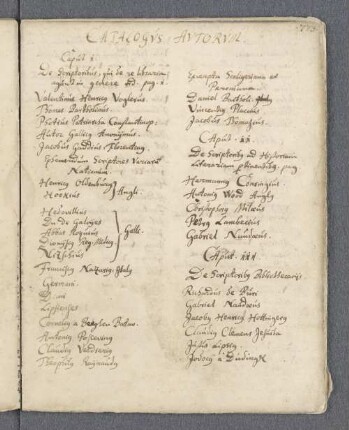 CATALOGUS AUTORUM
Caput I
De Scriptoribus, qui de re libraria
genere pag. 1
Valentinus Henricus Voglerus
Thomas Bartholinus
Photius Patriarcha Constantinop.
Autor Gallicus Anonymus
Jacobus Gaddius Florentinus
Ephemeridum Scriptores Variarum
Nationum
Henricus Oldenburg
Hookius
Angli
Hedouillius
Abbas Roquius
Galli
Franciscus Nazarius
Germani
Dani
Lipsienses
Cornelius a Beughem Batav.
Antonius Possevinus
Claudius Verderius
Theophilus Raynaudus
Daniel Bartholi
Vincentius Placcius
Jacobus Thomasius
Caput II
De Scriptoribus ad Historiam
literariam pag
Hermannus Conringius
Antonius Wood Anglus
Christophorus Milaeus
Petrus Lambecius
Gabriel Naudaeus
Caput III
De Scriptoribus Bibliothecariis
Richardus de Buri
Gabriel Naudaeus
Jacobus Henricus Hottingerus
Claudius Clemens Jesuita
Justus Lipsius
Jodocus a Dudingk